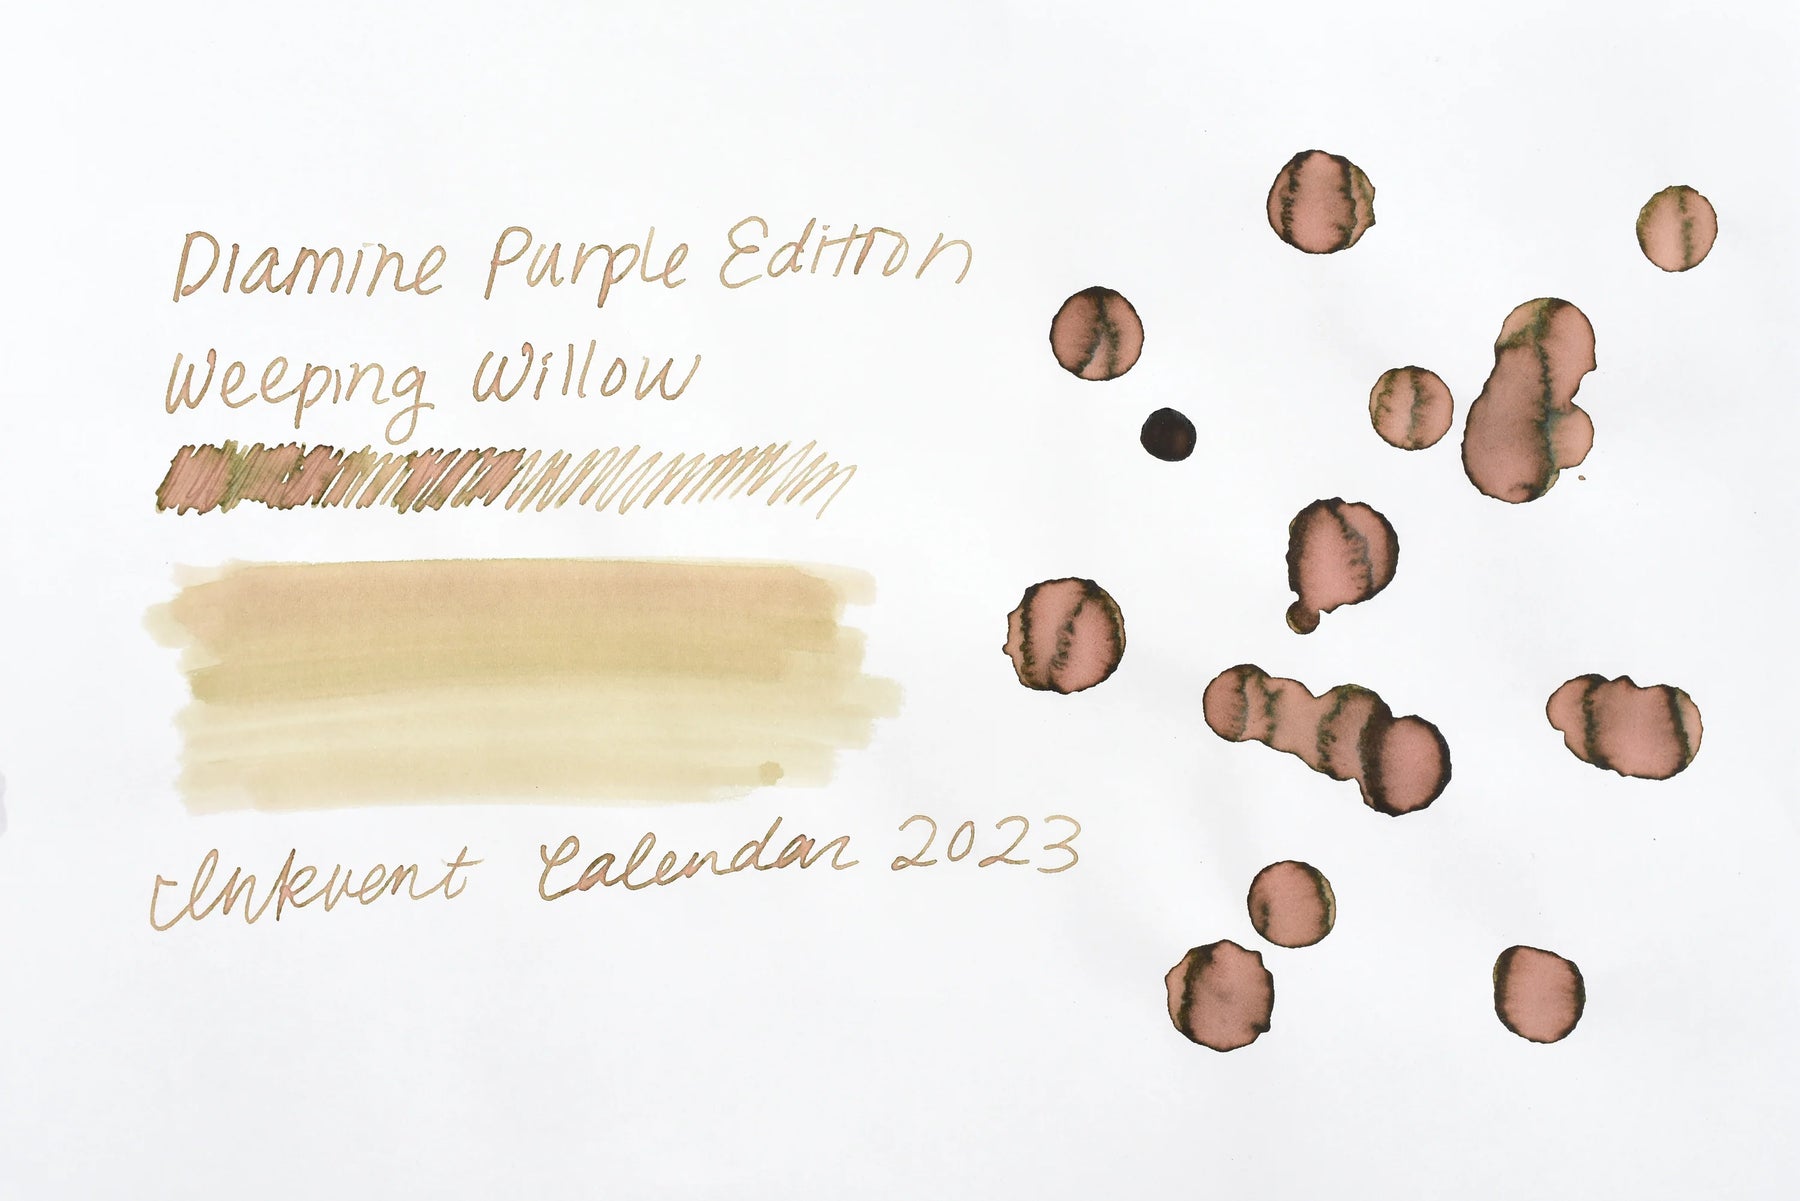 Diamine Purple Edition
Weeping Willow
Inkvent Calendar 2023